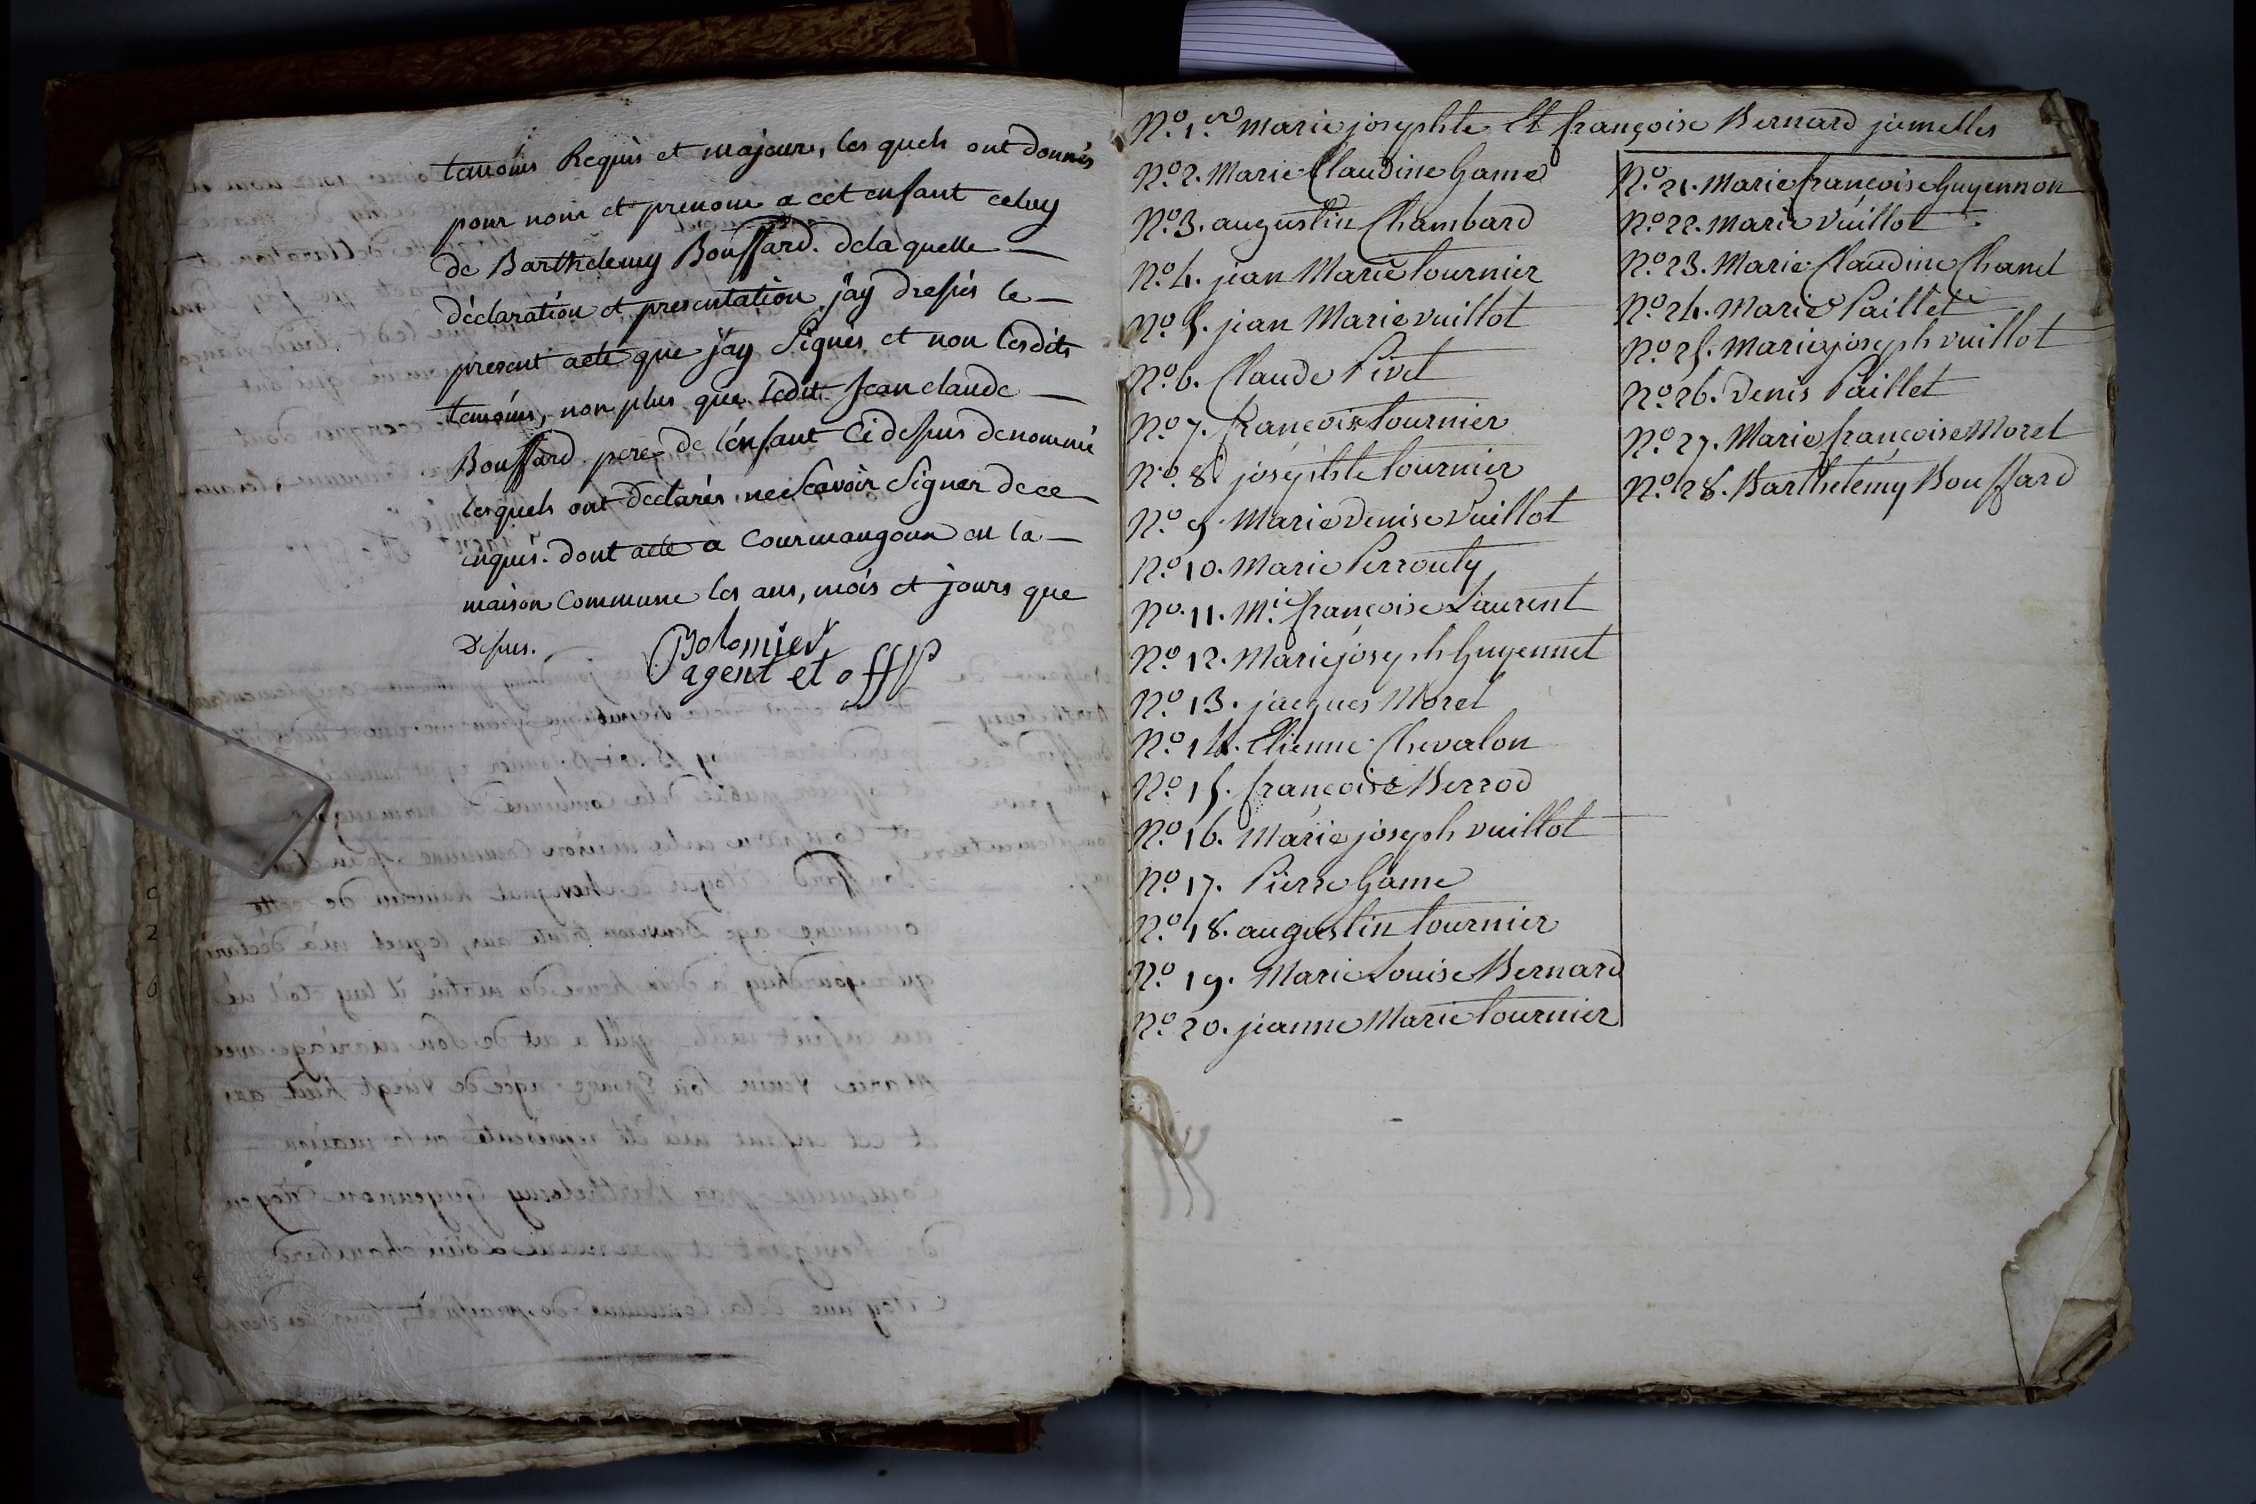 temoins Requis et majeurs, les quels ont donnés
pour nom et prenom a cet enfant celuy
de Barthelemy Bouffard. dela quelle —
déclaration et presentation j'ay dressés le —
present acte que j'ay Signés et non lesdits
temoins, non plus que ledit Jean claude —
Bouffard pere de l'enfant Ci dessus denommé
lesquels ont declarés ne Scavoir Signer de ce —
enquis. dont acte a Courmangoux en la —
maison Commune les ans, mois et jours que
dessus.
Bolomier
agent et off p
N.º 1.er Marie josephte Et françoise Bernard jumelles
N.º 2. Marie Claudine Game
N.º 3. augustin Chambard
N.º 4. jean Marie tournier
N.º 5. jean Marie vuillot
N.º 6. Claude Pivet
N.º 7. françois tournier
N.º 8. joséphte tournier
N.º 9. Marie Denise Vuillot
N.º 10. Marie Perrouty
N.º 11. M.ie françoise Laurent
N.º 12. Marie joseph Guyennet
N.º 13. jacques Morel
N.º 14. Etienne Chevalon
N.º 15. françoise Berrod
N.º 16. Marie joseph vuillot
N.º 17. Pierre Game
N.º 18. augustin tournier
N.º 19. Marie Louise Bernard
N.º 20. jeanne Marie tournier
N.º 21. Marie françoise Guyennon
N.º 22. Marie Vuillot
N.º 23. Marie Claudine Chanel
N.º 24. Marie Paillet
N.º 25. Marie joseph vuillot
N.º 26. Denis Paillet
N.º 27. Marie françoise Morel
N.º 28. Barthelémy Bouffard